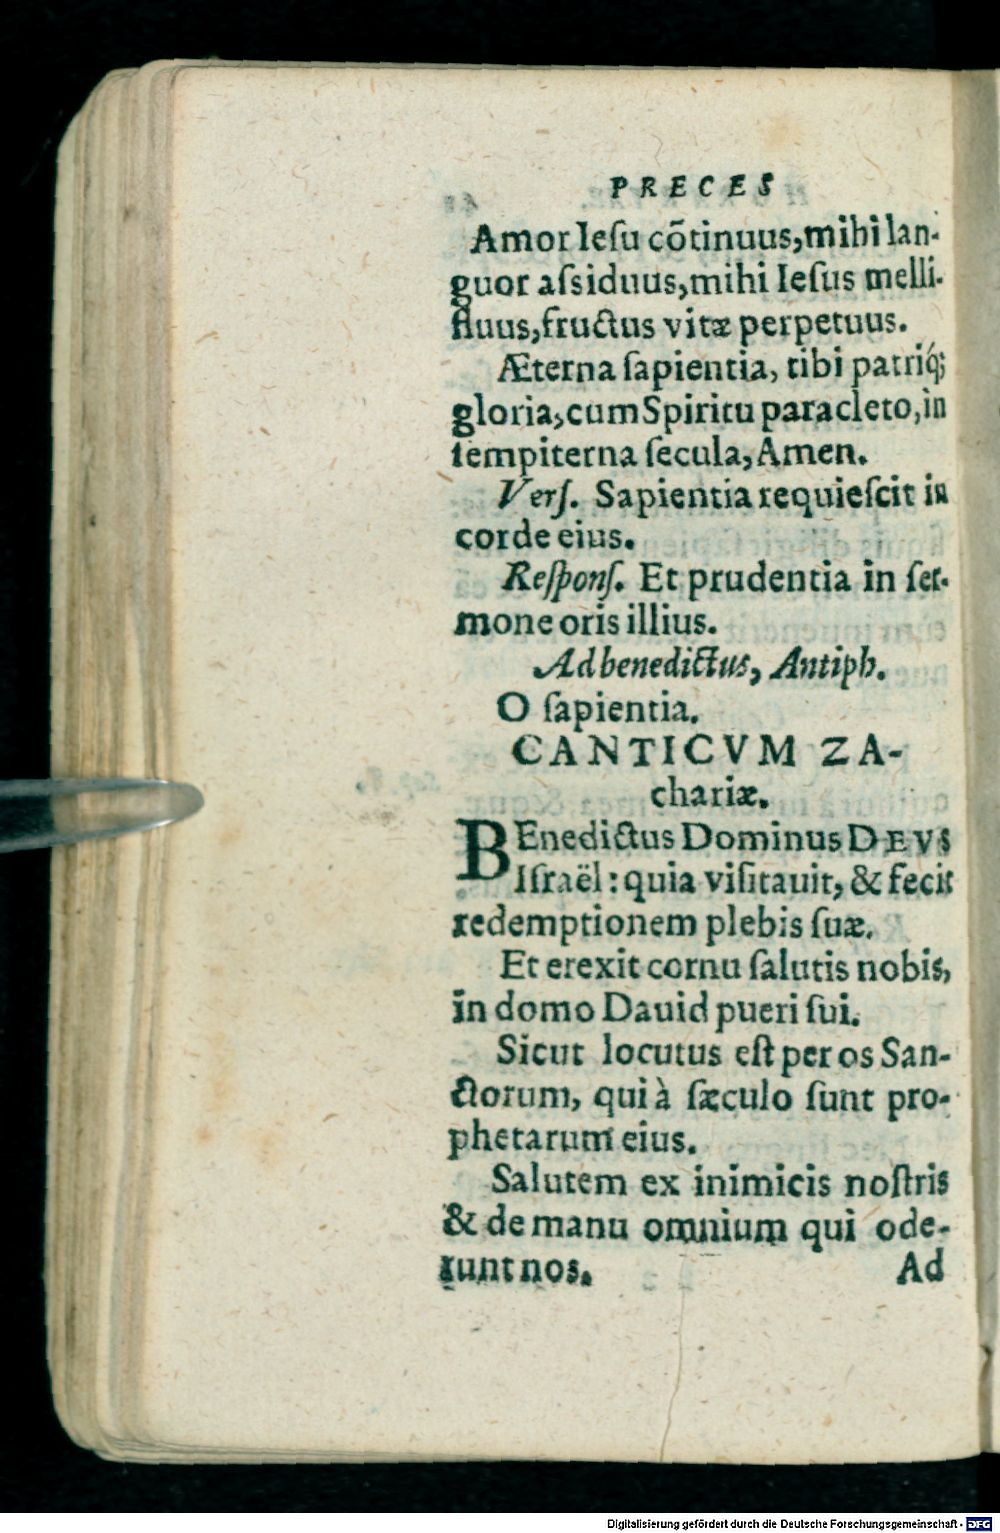 PRECES
Amor Ieſu cõtinuus, mihi lan-
guor aſsiduus, mihi Ieſus melli-
fluus, fructus vitæ perpetuus.
Æterna ſapientia, tibi patriq́;
gloria, cum Spiritu paracleto, in
ſempiterna ſecula, Amen.
Verſ. Sapientia requieſcit in
corde eius.
Reſponſ. Et prudentia in ſer-
mone oris illius.
Ad benedictus, Antiph.
O ſapientia.
CANTICVM ZA-
chariæ.
BEnedictus Dominus DEVS
Iſraël: quia viſitauit, & fecit
redemptionem plebis ſuæ.
Et erexit cornu ſalutis nobis,
in domo Dauid pueri ſui.
Sicut locutus eſt per os San-
ctorum, qui à ſæculo ſunt pro-
phetarum eius.
Salutem ex inimicis noſtris
& de manu omnium qui ode-
runt nos. Ad
Digitalisierung gefördert durch die Deutsche Forschungsgemeinschaft - DFG